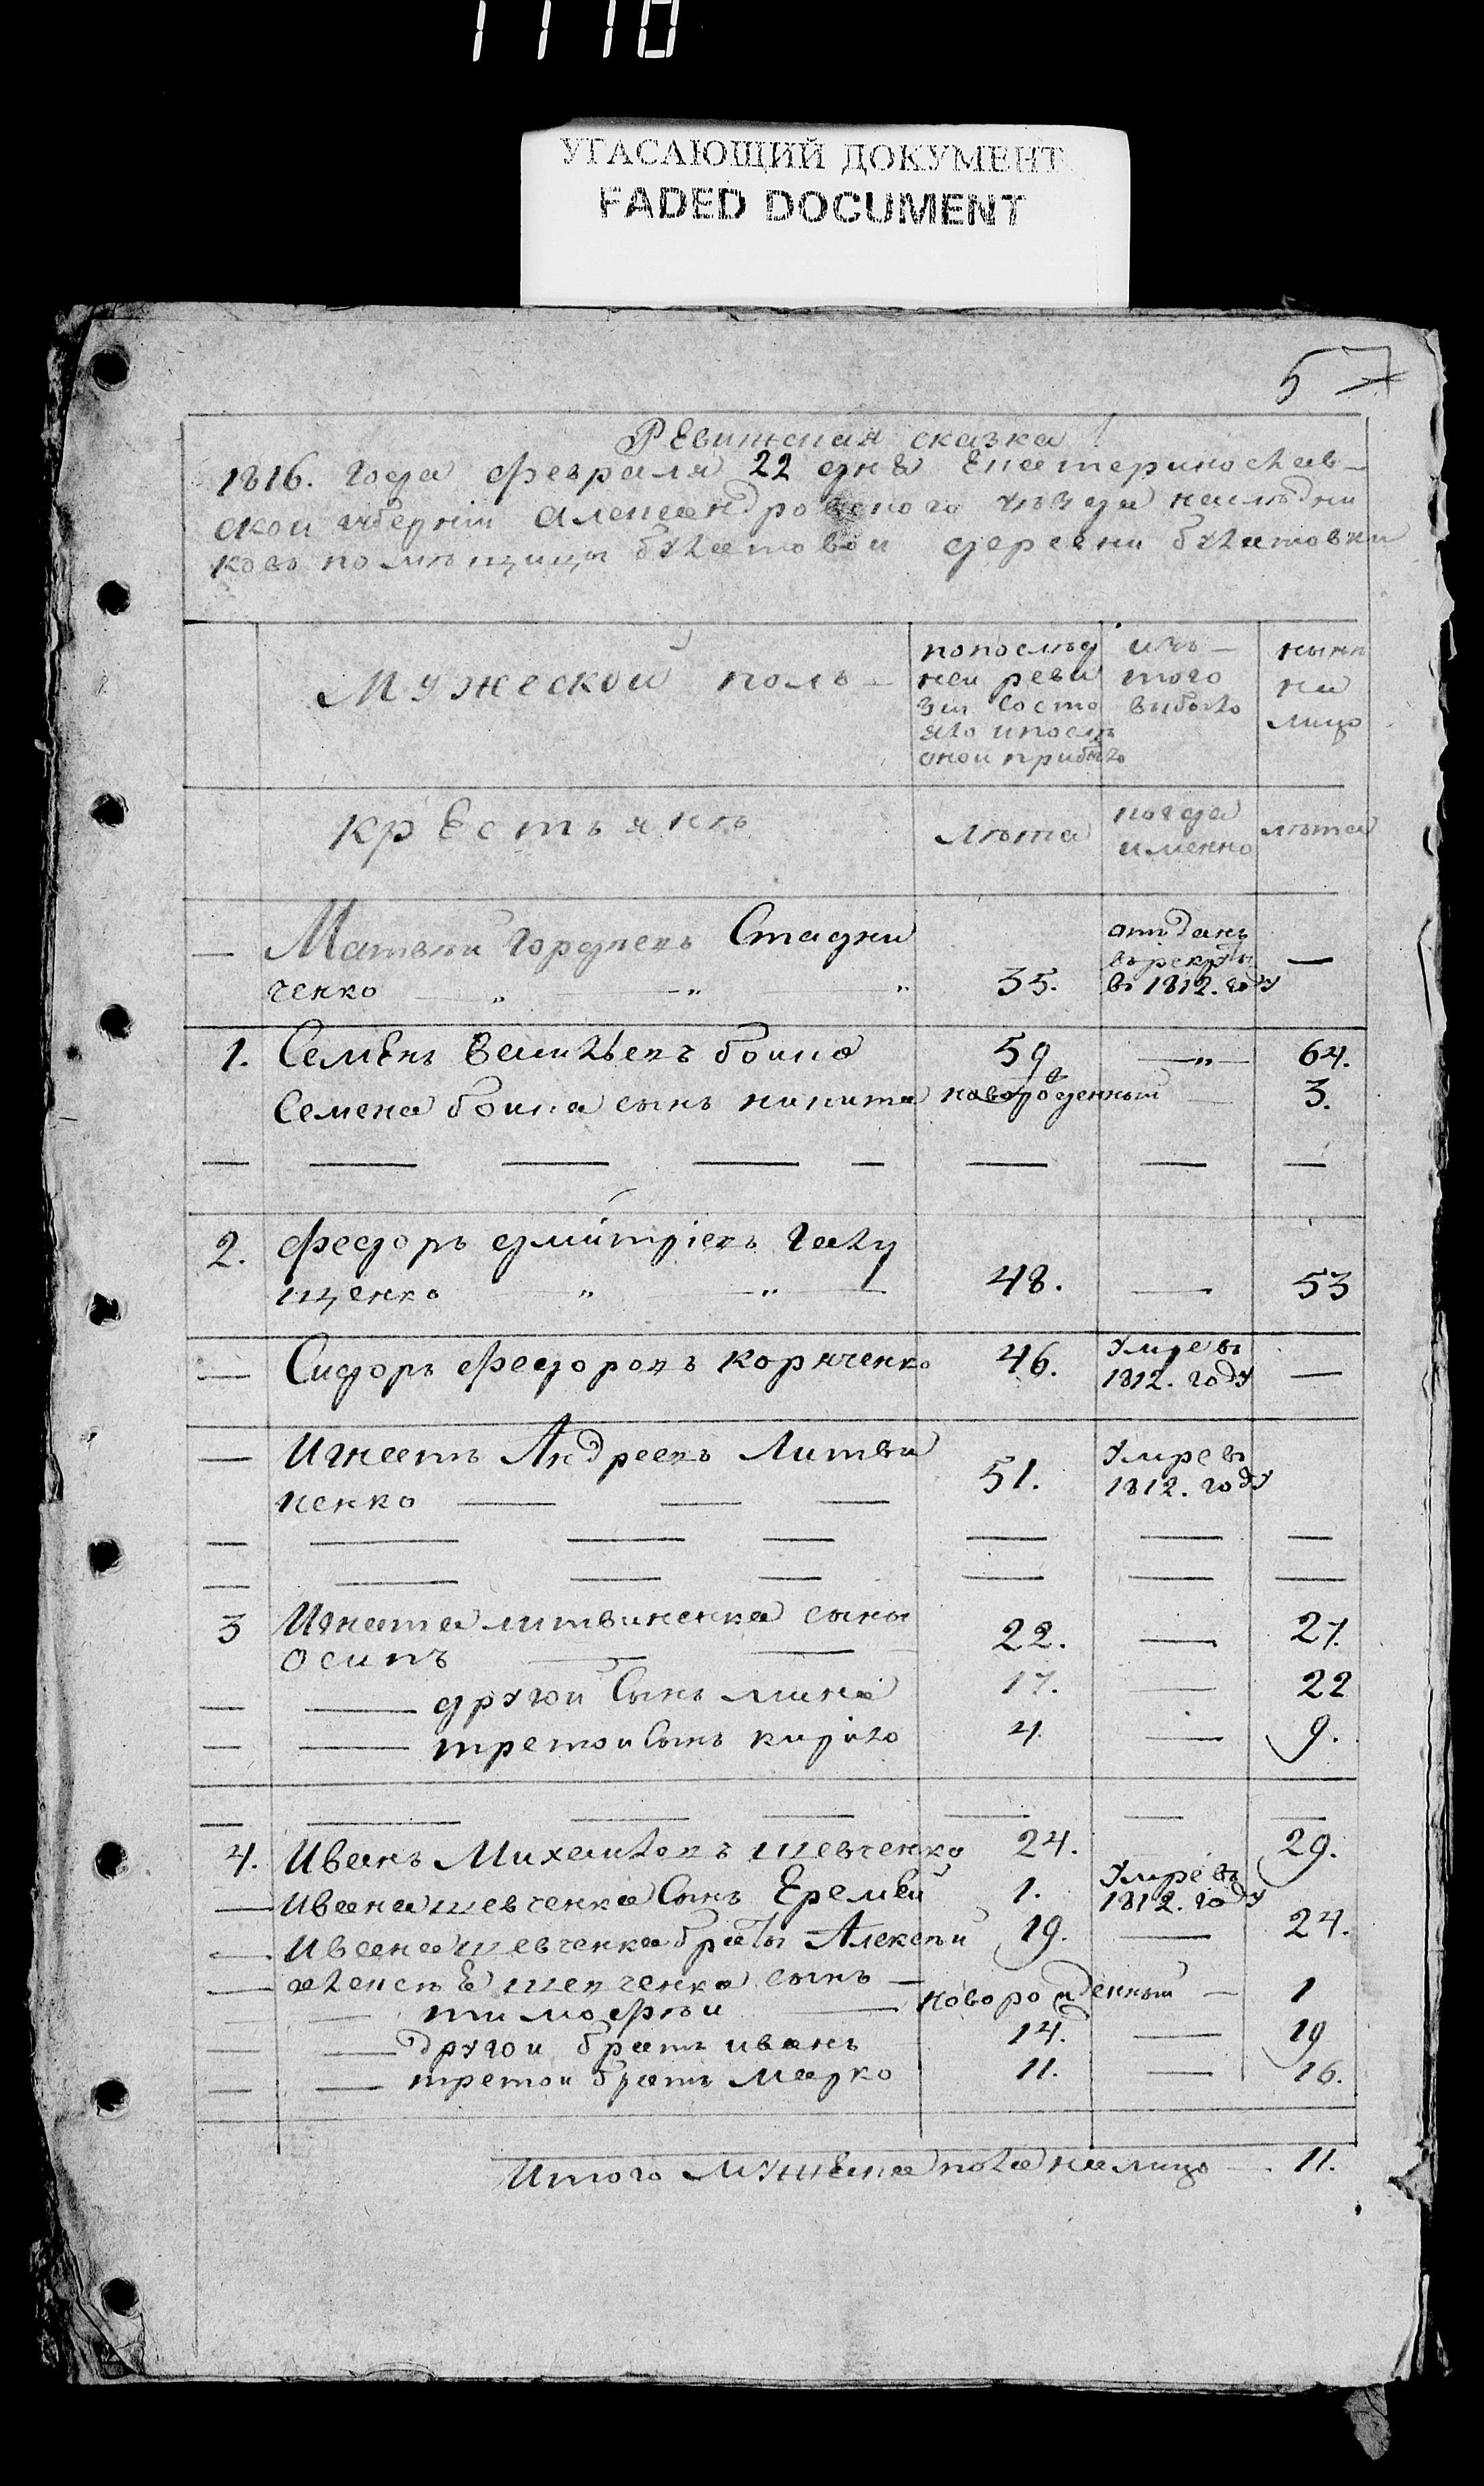 1110
УГАСАЮЩИЙ ДОКУМЕНТ
FADED DOCUMENT
57
РЕвижская сказка
1816. года февраля 22 дня Екатеринослав-
ской губерніи Александровского уѣзда наслѣдни
ковъ помѣщицы булатовой деревни булатовки
Мужеской полъ
попослѣд
ней реви
зіи состо
яло ипослѣ
оной прибыло
изъ
того
выбыло
нынѣ
на
лицо
крЕстьянъ
лѣта
когда
именно
лѣта
— Матвѣй Гордѣевъ Стадни
ченко 35. отданъ
врекруты
въ 1812. году —
1. СемЕнъ Васильевъ бойко 59 — 64.
Семена бойка сынъ никита новорожденный 3.
2. Федоръ дмитріевъ Галу
щенко 48. — 53
— Сидоръ Федоровъ корнченко 46. Умре въ
1812. году —
— Игнатъ Андреевъ Литви
ненко 51. Умре въ
1812. году
3 Игната литвиненка сыны
осипъ 22. — 27.
— другой Сынъ мина 17. — 22
— третой Сынъ кирило 4. — 9.
4. Иванъ Михайловъ шевченко 24. 29.
— Ивана шевченка Сынъ Еремѣй 1. Умре въ
1812. году
— Ивана шевченка братъ Алексѣй 19. — 24.
— алексѣя шевченка сынъ —
тимофѣй — новорожденный — 1
— другой братъ иванъ 14. — 19
— третой братъ марко 11. — 16.
Итого мужеска пола налицо — 11.